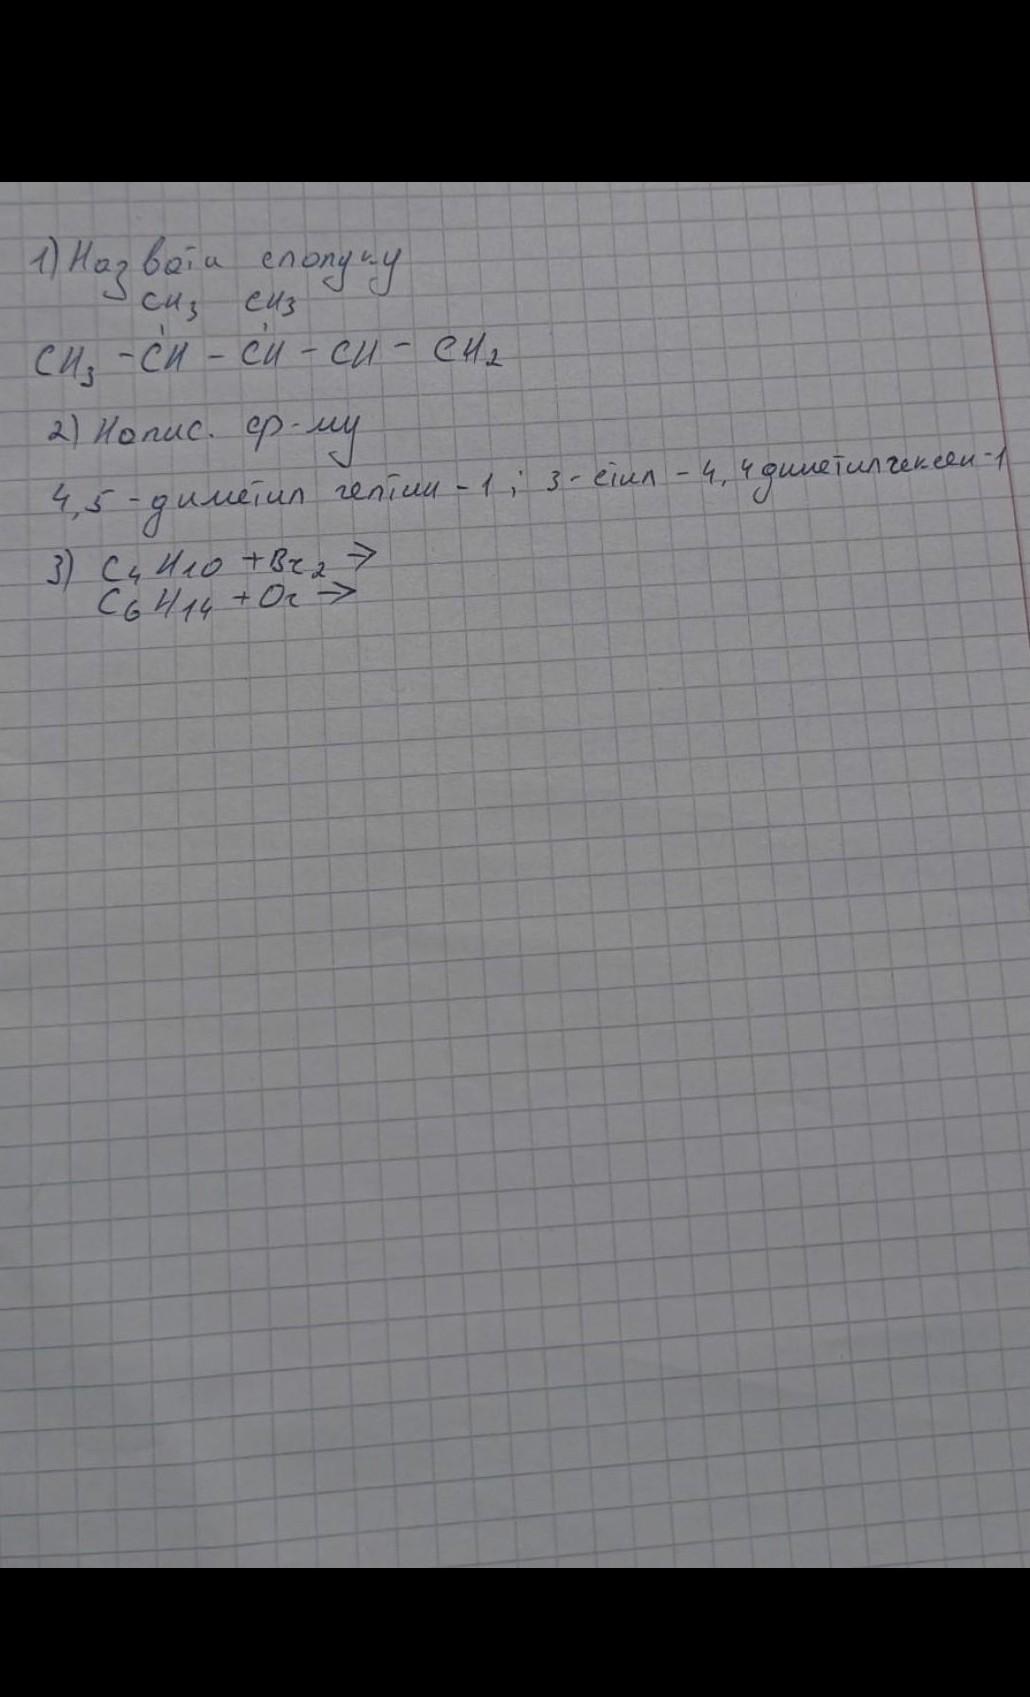 1) Назвати сполуку
CH3 CH3
CH3 - CH - CH - CH - CH2
2) Напис. ф-му
4,5 - диметил гептин - 1 ; 3 - етил - 4, 4 диметилгексен - 1
3) C4 H10 + Br2 →
C6 H14 + O2 →